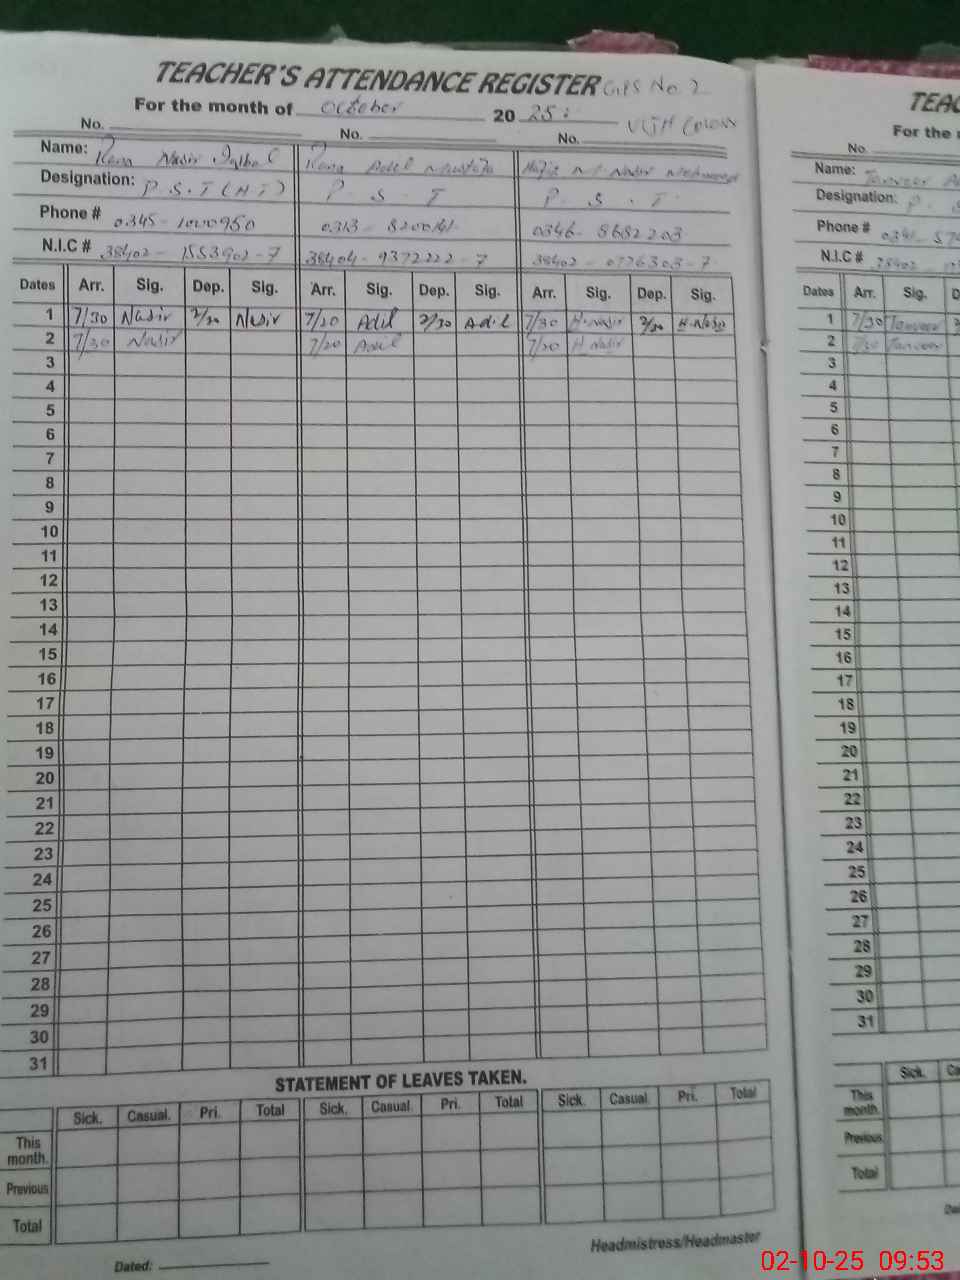 TEACHER'S ATTENDANCE REGISTER GPS No. 2
For the month of October 2025
No. No. No.
Name: Rana Nasir Iqbal Rana Adil Mustafa Hafiz Nasir
Designation: P.S.T (H T) P S T P. S. T.
Phone # 0345-1000950 0313-8200141 0346-8682203
N.I.C # 38402-1553902-7 38404-9372222-7 38402-0776303-7
Dates Arr. Sig. Dep. Sig. Arr. Sig. Dep. Sig. Arr. Sig. Dep. Sig.
1 7/30 Nasir 2/30 Nasir 7/20 Adil 2/30 Adil 7/30 H-Nasir 2/30 H-Nasir
2 7/30 Nasir 7/20 Adil 7/20 H Nasir
3
4
5
6
7
8
9
10
11
12
13
14
15
16
17
18
19
20
21
22
23
24
25
26
27
28
29
30
31
STATEMENT OF LEAVES TAKEN.
Sick. Casual. Pri. Total Sick. Casual. Pri. Total Sick. Casual. Pri. Total
This month.
Previous
Total
Dated: Headmistress/Headmaster
TEAC
For the
No.
Name: Tanveer
Designation: P.
Phone # 0341-57
N.I.C #
Dates Arr. Sig. D
1 7/30 Tanveer
2 7/30 Tanveer
3
4
5
6
7
8
9
10
11
12
13
14
15
16
17
18
19
20
21
22
23
24
25
26
27
28
29
30
31
Sick. Ca
This month.
Previous
Total
02-10-25 09:53